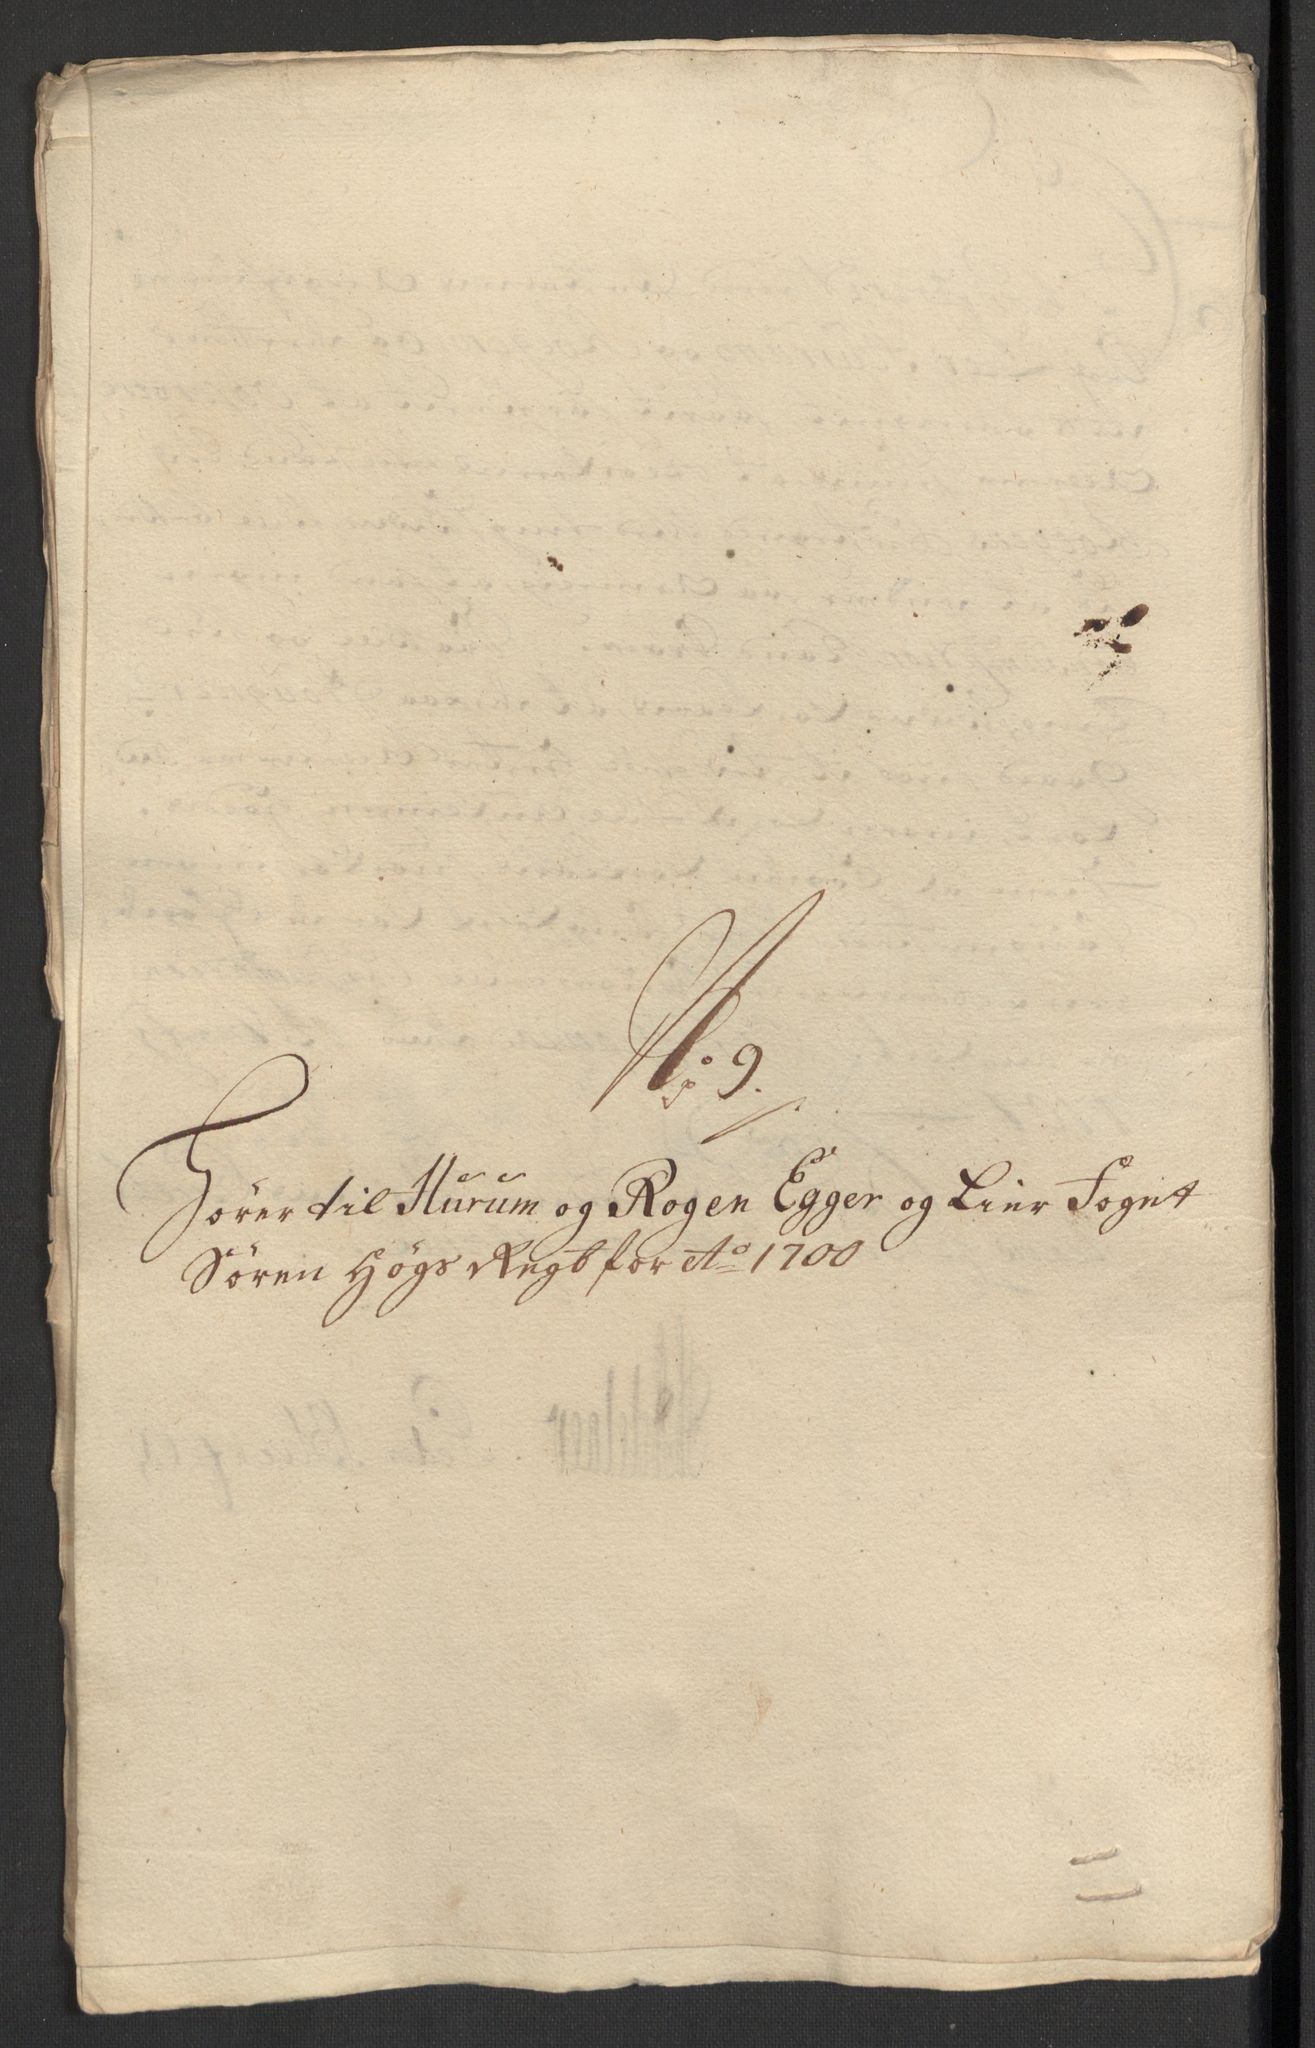 No 9.
Hörer til Hurum og Rogen Egger og Lier Fogut
Sören Högs Regb for Ao 1700